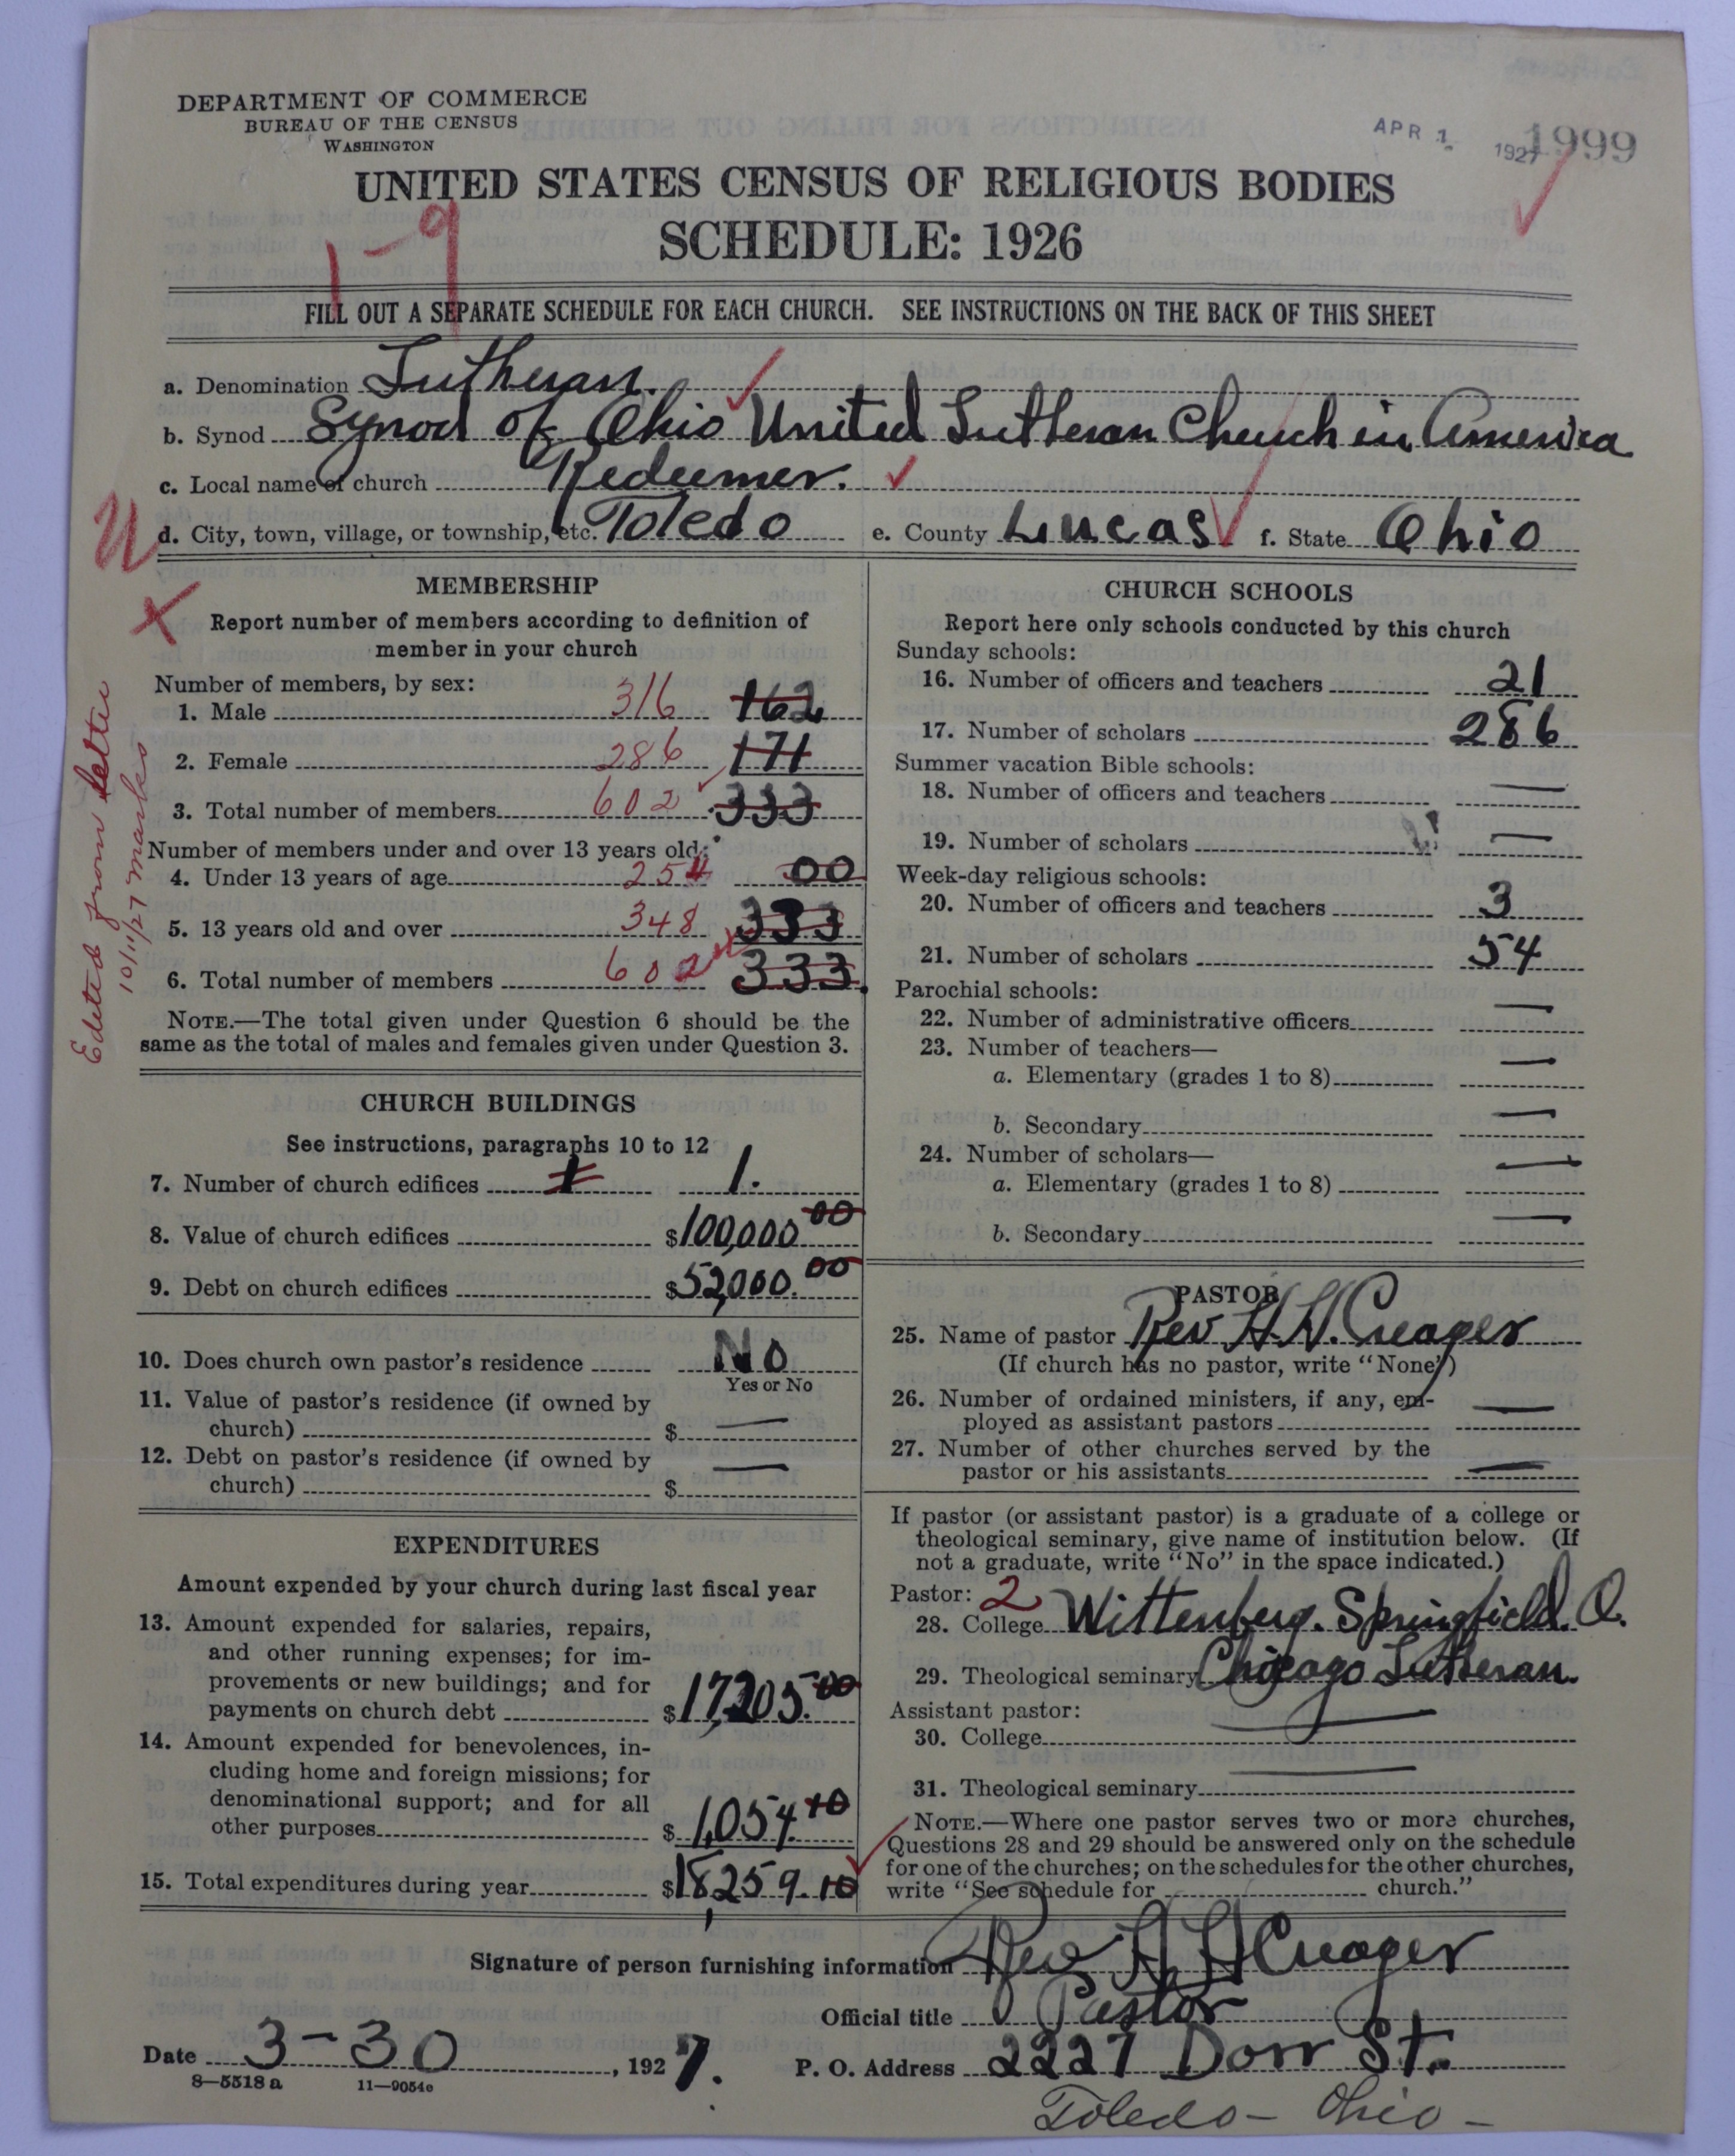 DEPARTMENT OF COMMERCE
BUREAU OF THE CENSUS
WASHINGTON
APR 1 1927
1999
UNITED STATES CENSUS OF RELIGIOUS BODIES
SCHEDULE: 1926
1-9
FILL OUT A SEPARATE SCHEDULE FOR EACH CHURCH. SEE INSTRUCTIONS ON THE BACK OF THIS SHEET
a. Denomination Lutheran.
b. Synod Synod of Ohio United Lutheran Church in America
c. Local name of church Redeemer.
d. City, town, village, or township, etc. Toledo e. County Lucas f. State Ohio
Edited from letter
10/11/27 Marks
MEMBERSHIP
Report number of members according to definition of
member in your church
Number of members, by sex:
1. Male 316 162
2. Female 286 171
3. Total number of members 602 333
Number of members under and over 13 years old:
4. Under 13 years of age 254 00
5. 13 years old and over 348 333
6. Total number of members 602 333.
NOTE.—The total given under Question 6 should be the
same as the total of males and females given under Question 3.
CHURCH BUILDINGS
See instructions, paragraphs 10 to 12
7. Number of church edifices 1 1.
8. Value of church edifices $100,000 00
9. Debt on church edifices $52,000. 00
10. Does church own pastor's residence No
Yes or No
11. Value of pastor's residence (if owned by
church) $ —
12. Debt on pastor's residence (if owned by
church) $ —
EXPENDITURES
Amount expended by your church during last fiscal year
13. Amount expended for salaries, repairs,
and other running expenses; for im-
provements or new buildings; and for
payments on church debt $17,205.00
14. Amount expended for benevolences, in-
cluding home and foreign missions; for
denominational support; and for all
other purposes $1,054.10
15. Total expenditures during year $18,259.10
CHURCH SCHOOLS
Report here only schools conducted by this church
Sunday schools:
16. Number of officers and teachers 21
17. Number of scholars 286
Summer vacation Bible schools:
18. Number of officers and teachers —
19. Number of scholars —
Week-day religious schools:
20. Number of officers and teachers 3
21. Number of scholars 54
Parochial schools:
22. Number of administrative officers —
23. Number of teachers—
a. Elementary (grades 1 to 8) —
b. Secondary —
24. Number of scholars—
a. Elementary (grades 1 to 8) —
b. Secondary —
PASTOR
25. Name of pastor Rev H. H. Creager
(If church has no pastor, write "None")
26. Number of ordained ministers, if any, em-
ployed as assistant pastors —
27. Number of other churches served by the
pastor or his assistants —
If pastor (or assistant pastor) is a graduate of a college or
theological seminary, give name of institution below. (If
not a graduate, write "No" in the space indicated.)
Pastor: 2
28. College Wittenberg. Springfield. O.
29. Theological seminary Chicago Lutheran.
Assistant pastor:
30. College —
31. Theological seminary —
NOTE.—Where one pastor serves two or more churches,
Questions 28 and 29 should be answered only on the schedule
for one of the churches; on the schedules for the other churches,
write "See schedule for church."
Signature of person furnishing information Rev H H Creager
Official title Pastor
Date 3-30, 1927. P. O. Address 2227 Dorr St.
8—5518 a 11—9054e
Toledo – Ohio –